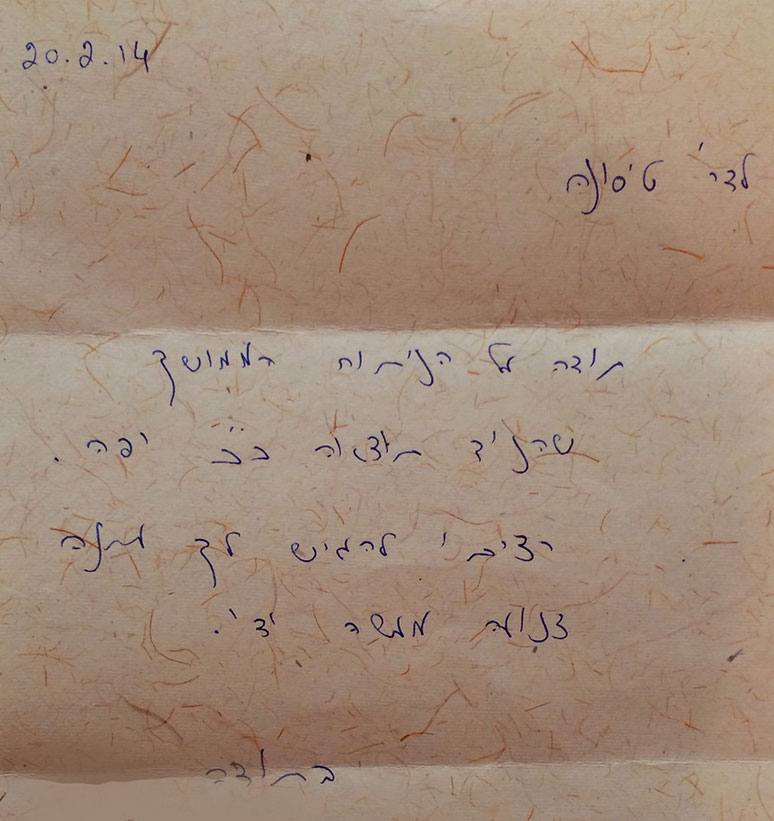 20.2.14
לדר' טיסונה
תודה על הניתוח הממושך
שהניד תוצאה כ"כ יפה.
רציתי להגיש לך מתנה
צנועה מעשה ידי.
בתודה